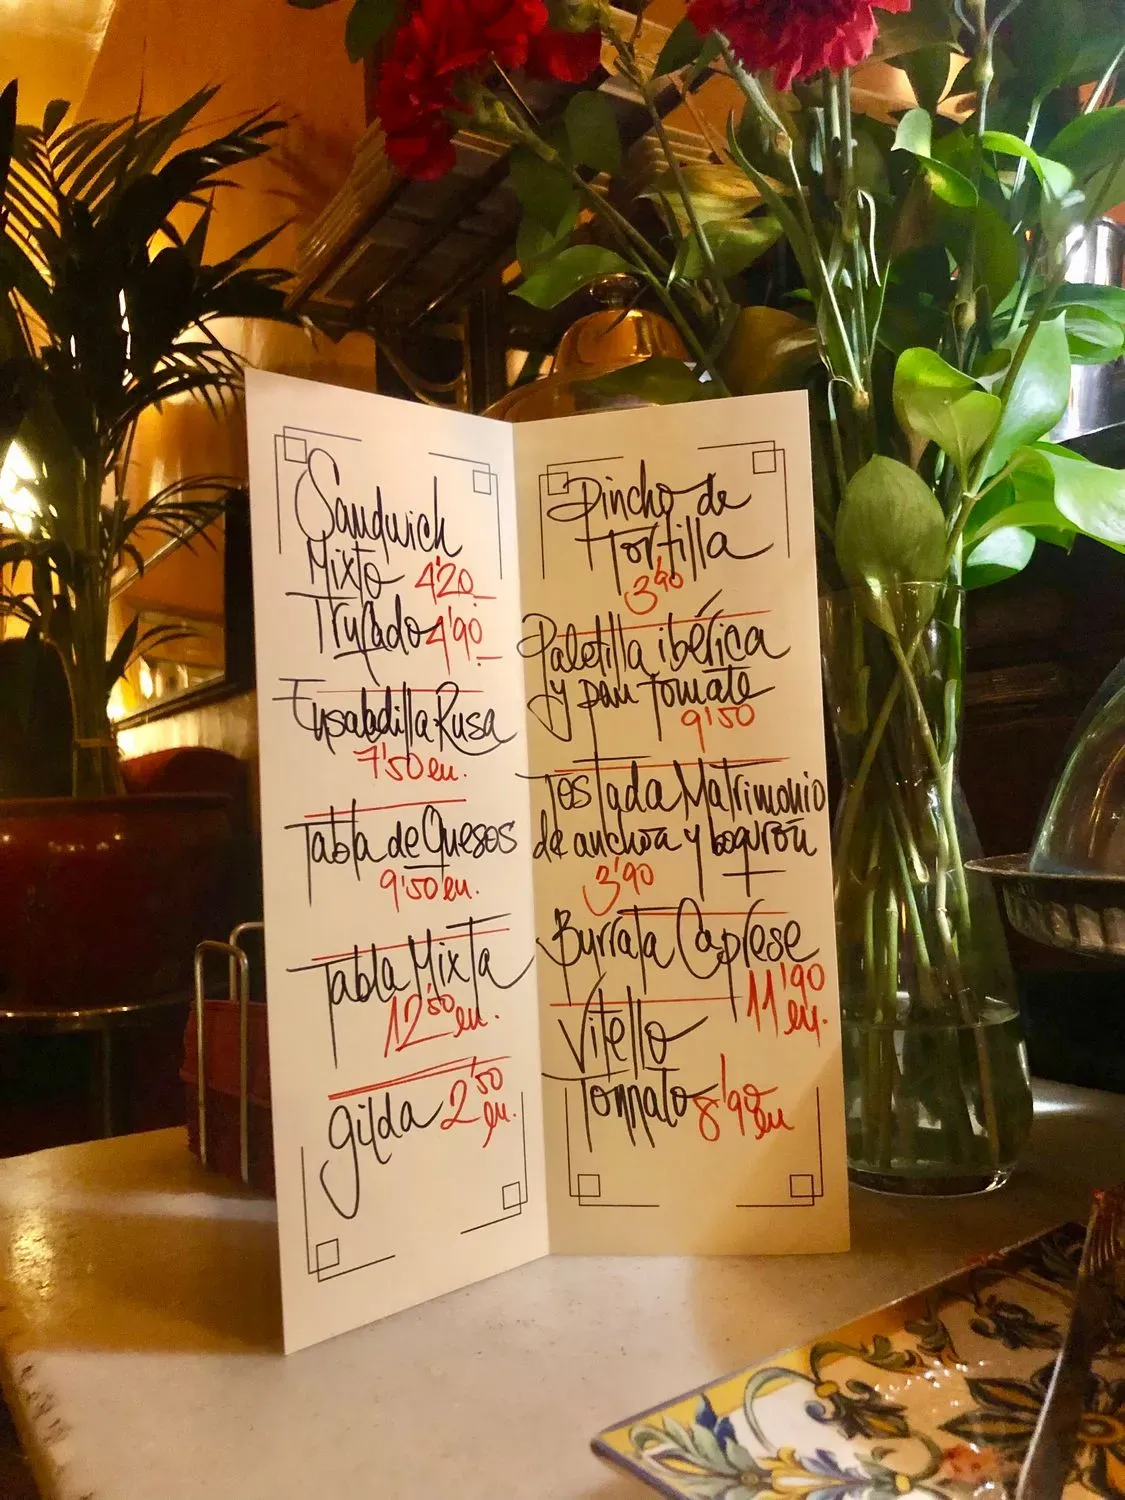 Sandwich
Mixto 4'20
Trufado 4'90
Ensaladilla Rusa
7'50 eu.
Tabla de Quesos
9'50 eu.
Tabla Mixta
12'50 eu.
gilda 2'50 eu.
Pincho de
Tortilla
3'90
Paletilla ibérica
y pan tomate
9'50
Tostada Matrimonio
de anchoa y boquerón
3'90
Burrata Caprese
11'90 eu.
Vitello
Tonnato 8'90 eu